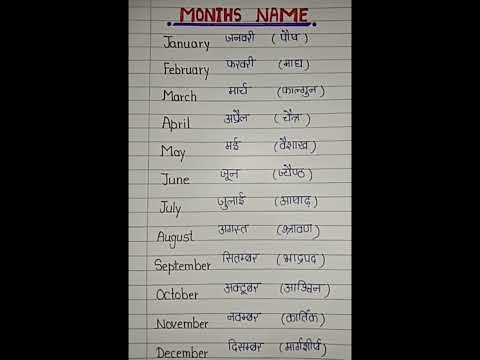 MONTHS NAME
January जनवरी (पौष)
February फरवरी (माघ)
March मार्च (फाल्गुन)
April अप्रैल (चैत्र)
May मई (वैशाख)
June जून (ज्यैष्ठ)
July जुलाई (आषाढ़)
August अगस्त (श्रावण)
September सितम्बर (भाद्रपद)
October अक्टूबर (आश्विन)
November नवम्बर (कार्तिक)
December दिसम्बर (मार्गशीर्ष)